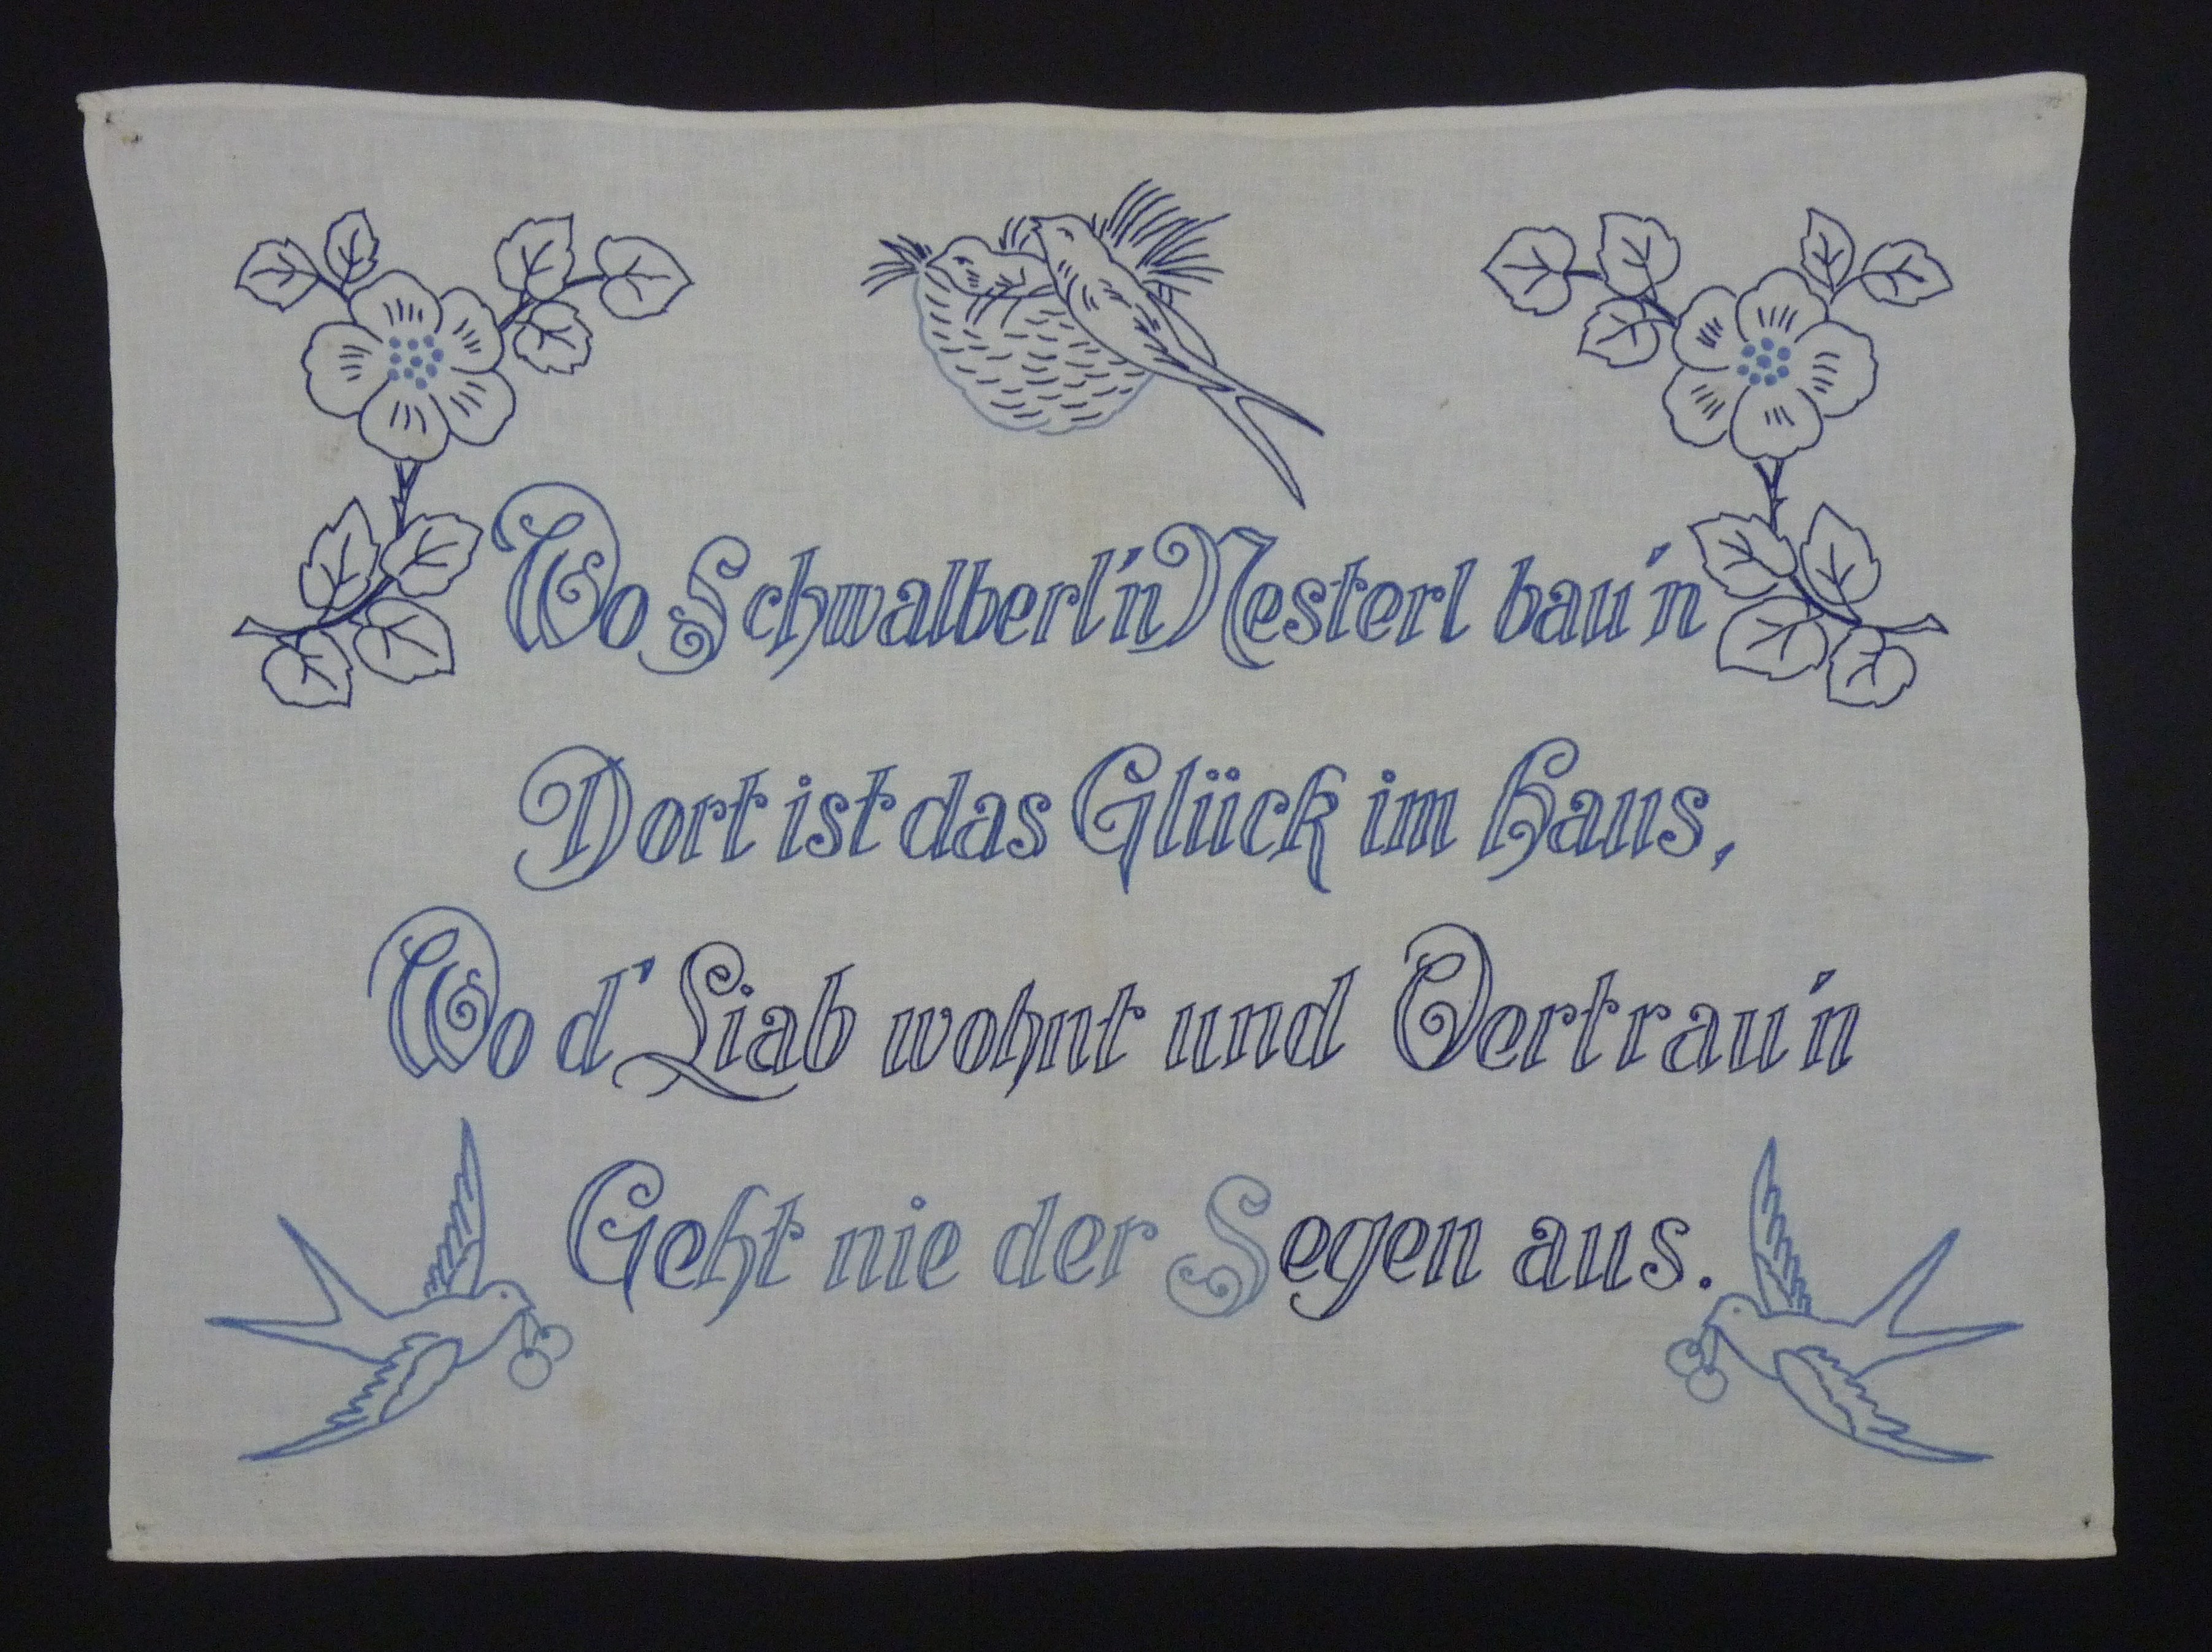 Wo Schwalberl'n Nesterl bau'n
Dort ist das Glück im Haus,
Wo d' Liab wohnt und Vertrau'n
Geht nie der Segen aus.